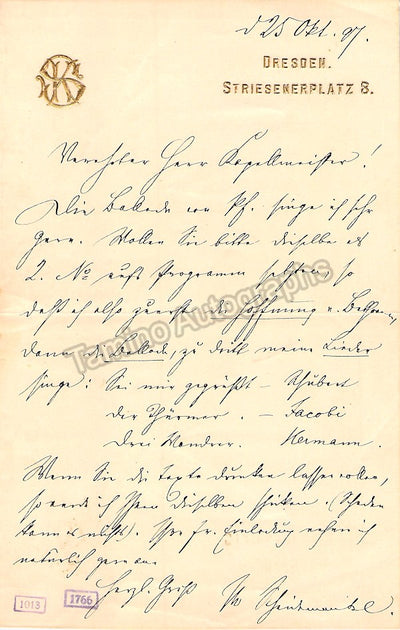 d 25 Okt. 97.
SK
DRESDEN.
STRIESENERPLATZ 8.
Verehrter Herr Kapellmeister!
Die Ballade von Pf. singe ich sehr
gern. Wollen Sie bitte dieselbe als
2. No aufs Programm setzen, so
daß ich also zuerst die Hoffnung v. Beethoven,
dann die Ballade, zu dritt meine Lieder
singe: Sei mir gegrüßt – Schubert
Der Thürmer. – Jacobi
Drei Wandrer. Hermann.
Wenn Sie die Texte drucken lassen wollen,
so werde ich Ihnen dieselben schicken. (Schaden
kann es nichts). Ihre fr. Einladung nehme ich
natürlich gern an.
Herzl. Gruß
K Scheidemantel.
1013
1766
Tamino Autographs